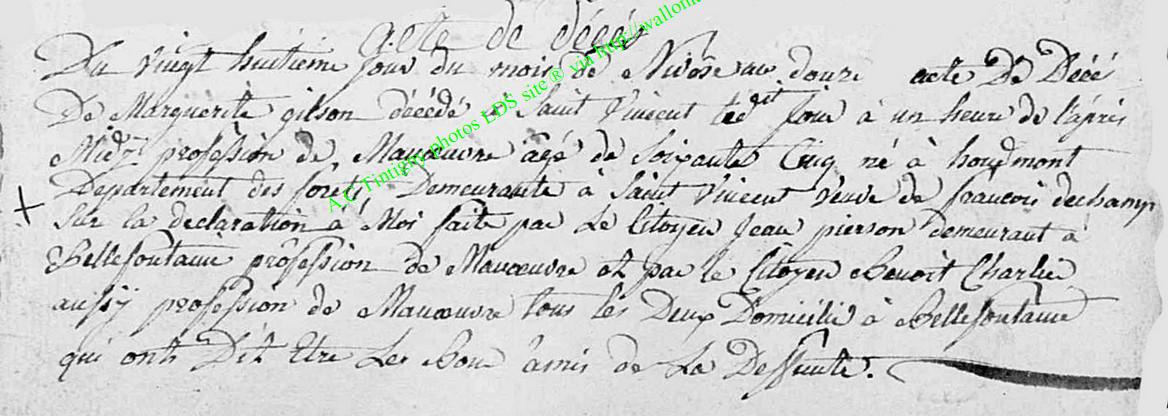 Acte de décés
Du vingt huitieme Jour du mois de Nivôse an douze acte De Décé
De Marguerite gilson décédé à Saint Vincent ledit Jour à un heure de l'après
Midy profession de Manœuvre agé de Soixante Cinq né à houdmont
Departement des forets Demeurante à Saint Vincent veuve de francois dechamp
Sur la declaration à Moi faite par Le Citoyen Jean pierson demeurant à
Bellefontaine profession de Manœuvre et par le Citoyen Benoit Charlie
aussy profession de Manœuvre tous les Deux Domicilié à Bellefontaine
qui onts Dit Etre Les Bons amis de La Deffunte.
A.C. Tintigny photos LDS site® via http://wallonia